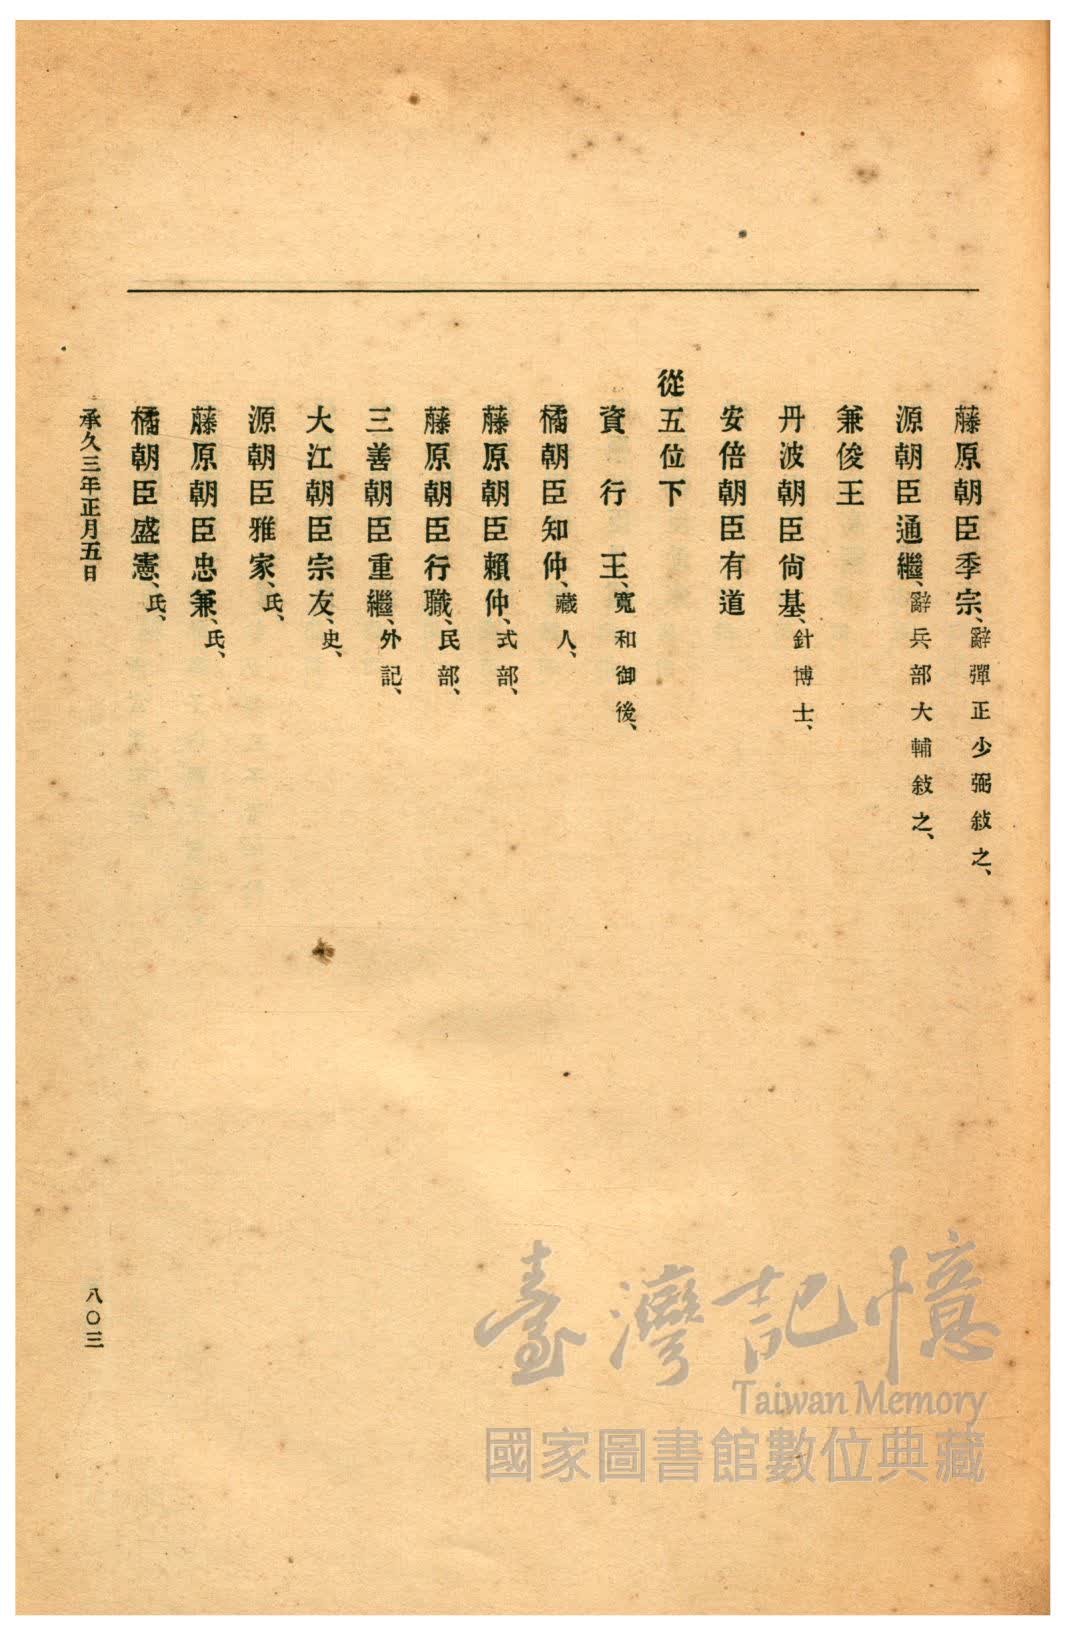 藤原朝臣季宗、辭彈正少弼敍之、
源朝臣通繼、辭兵部大輔敍之、
兼俊王
丹波朝臣尙基、針博士、
安倍朝臣有道
從五位下
資行王、寬和御後、
橘朝臣知仲、藏人、
藤原朝臣賴仲、式部、
藤原朝臣行職、民部、
三善朝臣重繼、外記、
大江朝臣宗友、史、
源朝臣雅家、氏、
藤原朝臣忠兼、氏、
橘朝臣盛憲、氏、
承久三年正月五日
八〇三
臺灣記憶
Taiwan Memory
國家圖書館數位典藏